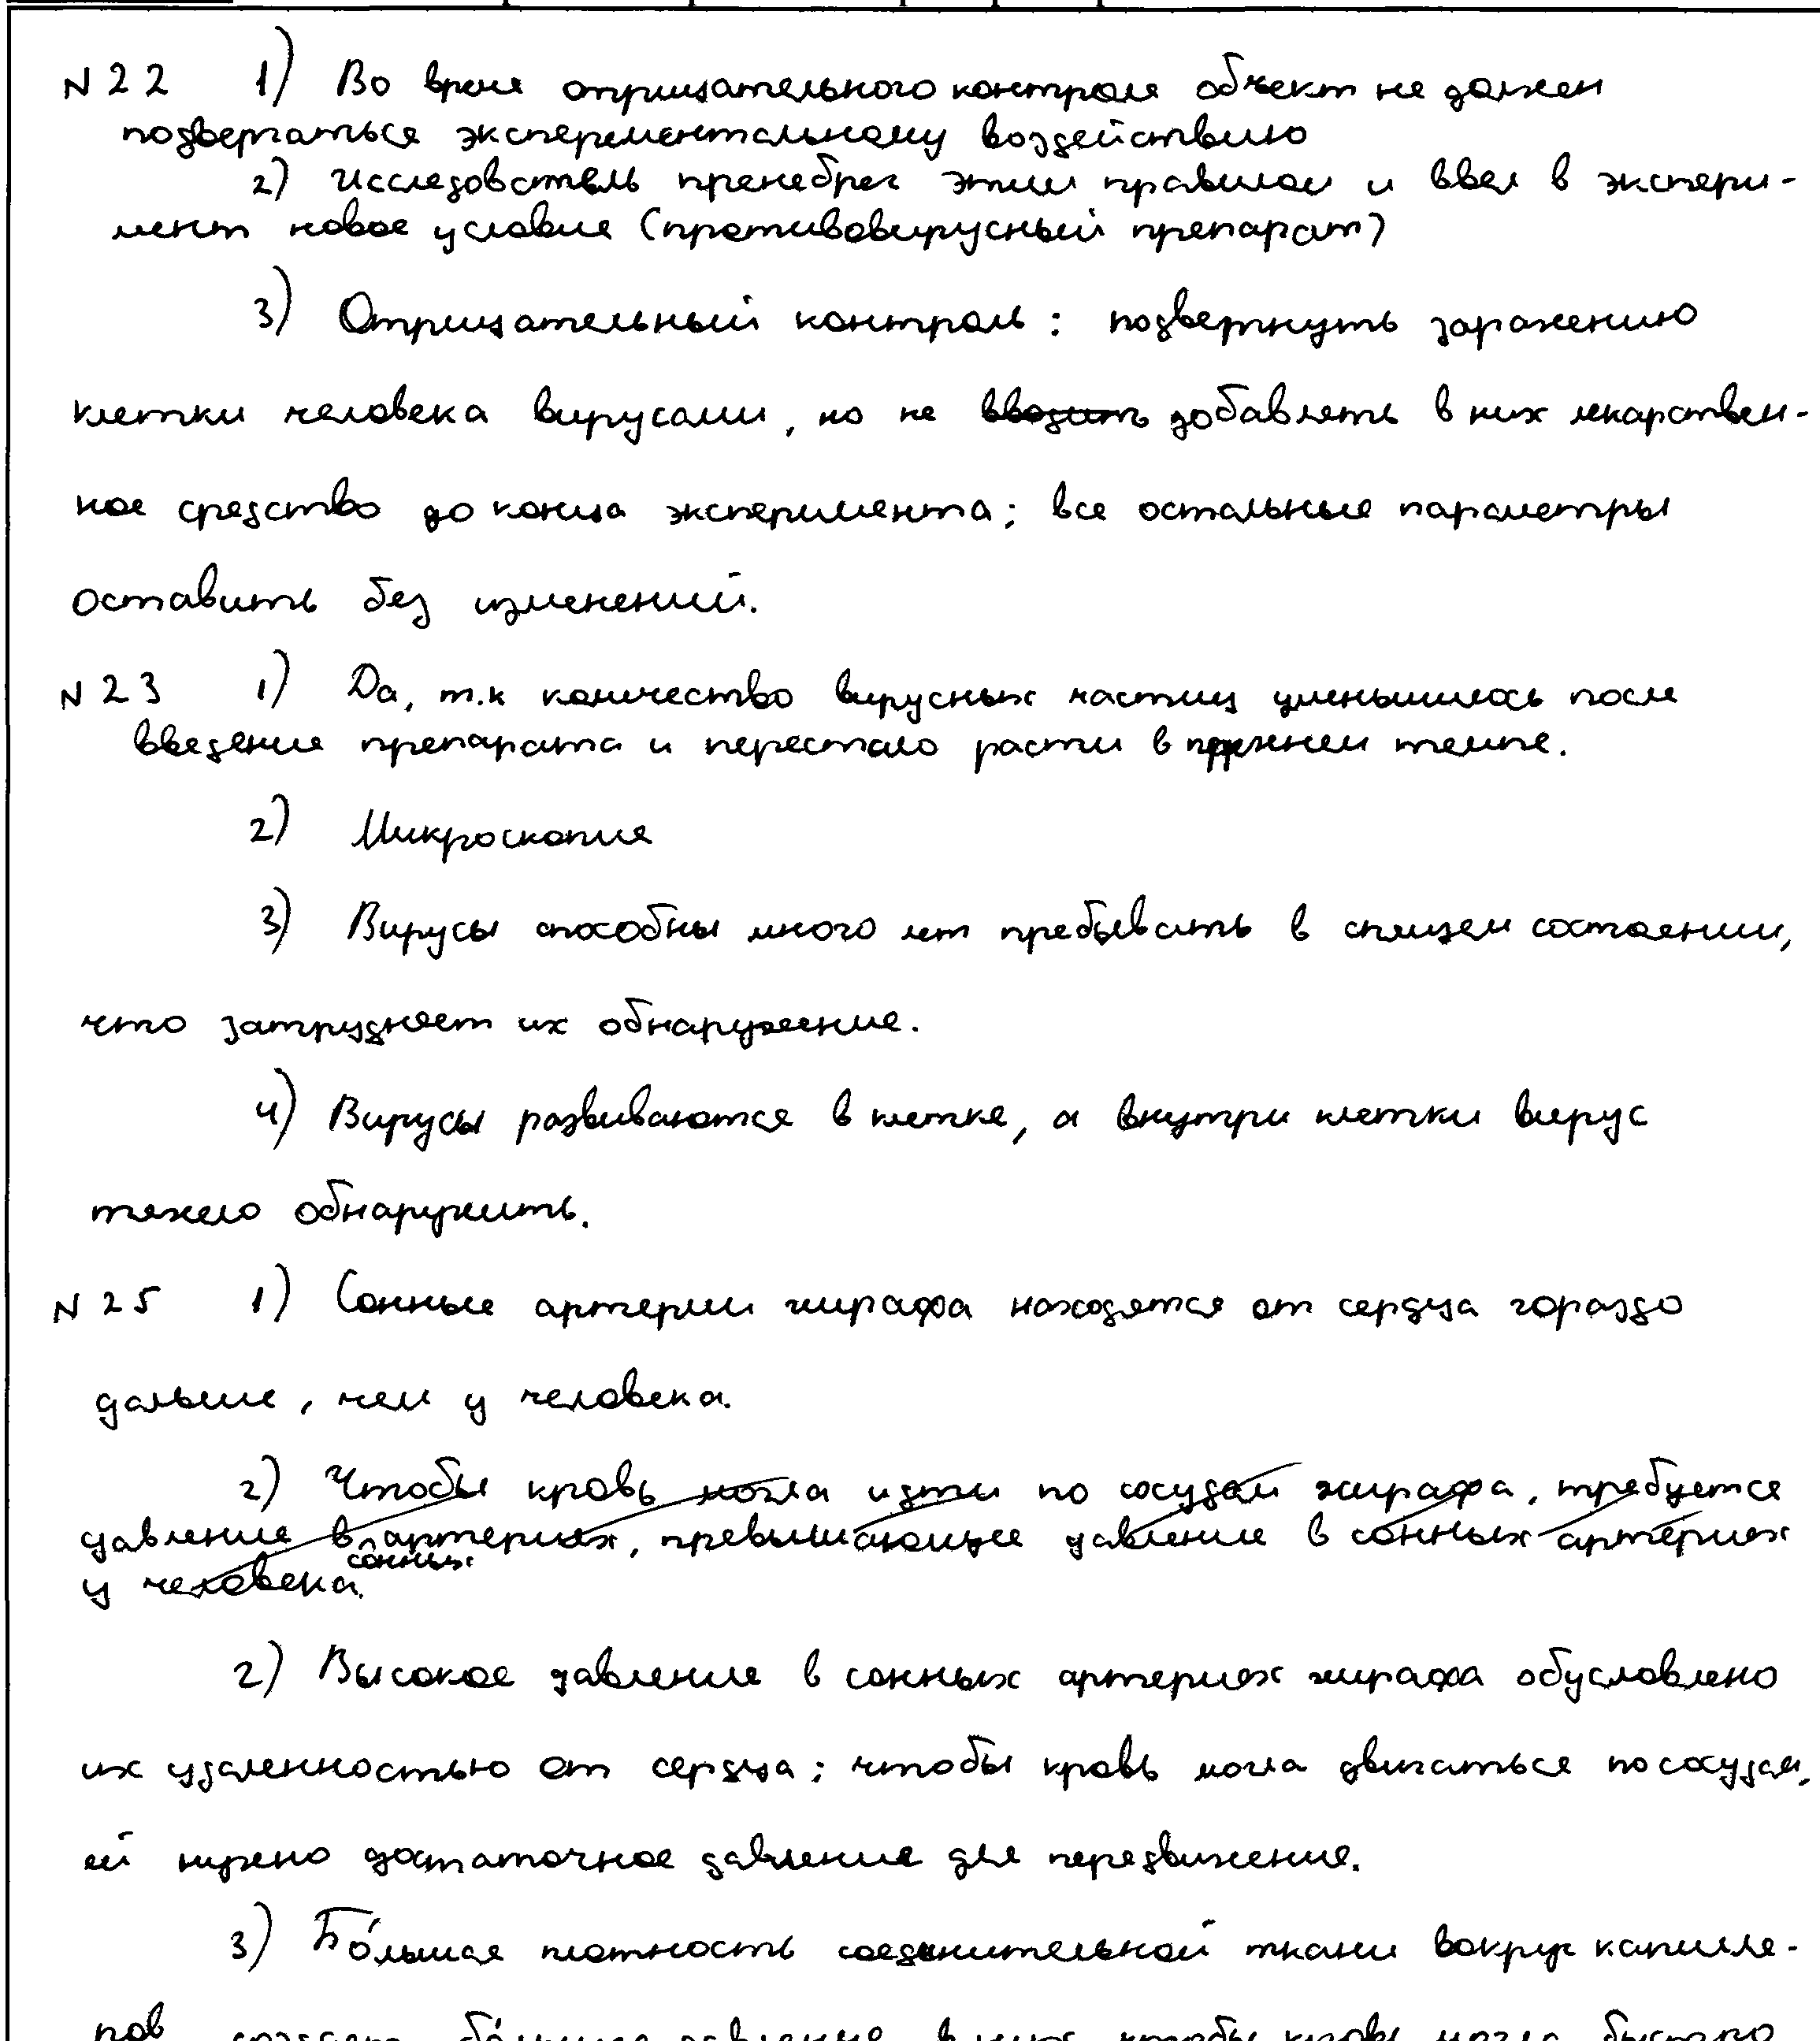 N 22 1) Во время отрицательного контроля объект не должен
подвергаться эксперементальному воздействию
2) Исследователь пренебрег этим правилом и ввел в экспери-
мент новое условие (противовирусный препарат)
3) Отрицательный контроль: подвергнуть заражению
клетки человека вирусами, но не вводить добавлять в них лекарствен-
ное средство до конца эксперимента; все остальные параметры
оставить без изменений.
N 23 1) Да, т.к количество вирусных частиц уменьшилось после
введения препарата и перестало расти в прежнем темпе.
2) Микроскопия
3) Вирусы способны много лет пребывать в спящем состоянии,
что затрудняет их обнаружение.
4) Вирусы развиваются в клетке, а внутри клетки вирус
тяжело обнаружить.
N 25 1) Сонные артерии жирафа находятся от сердца гораздо
дальше, чем у человека.
2) Чтобы кровь могла идти по сосудам жирафа, требуется
давление в сонных артериях, превышающее давление в сонных артериях
у человека.
2) Высокое давление в сонных артериях жирафа обусловлено
их удаленностью от сердца; чтобы кровь могла двигаться по сосудам,
ей нужно достаточное давление для передвижения.
3) Бо́льшая плотность соединительной ткани вокруг капилля-
ров